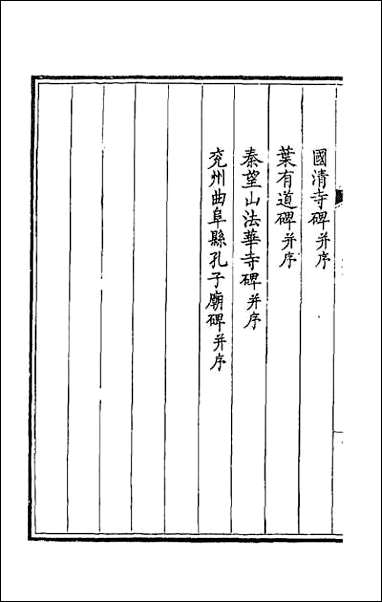 國清寺碑并序
葉有道碑并序
秦望山法華寺碑并序
兖州曲阜縣孔子廟碑并序